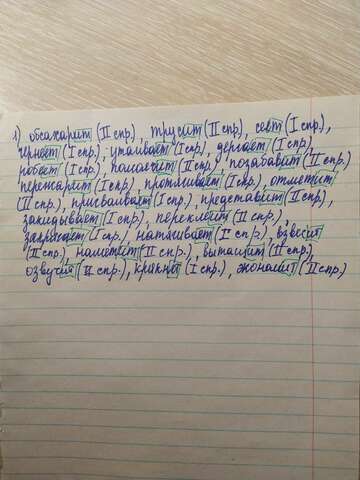 1) обсахарит (II спр.), трусит (II спр.), сеет (I спр.),
чернеет (I спр.), утаивает (I спр.), дергает (I спр.),
робеет (I спр.), помолчит (II спр.), позабавит (II спр.)
пережарит (I спр.), протягивает (I спр.), отметит
(II спр.), присваивает (I спр.), представит (II спр.),
закидывает (I спр.), переклеит (II спр.),
запрягает (I спр.), натягивает (I спр.), взвесит
(II спр.), наметит (II спр.), вытащит (II спр.),
озвучит (II спр.), крикнет (I спр.), экономит (II спр.)